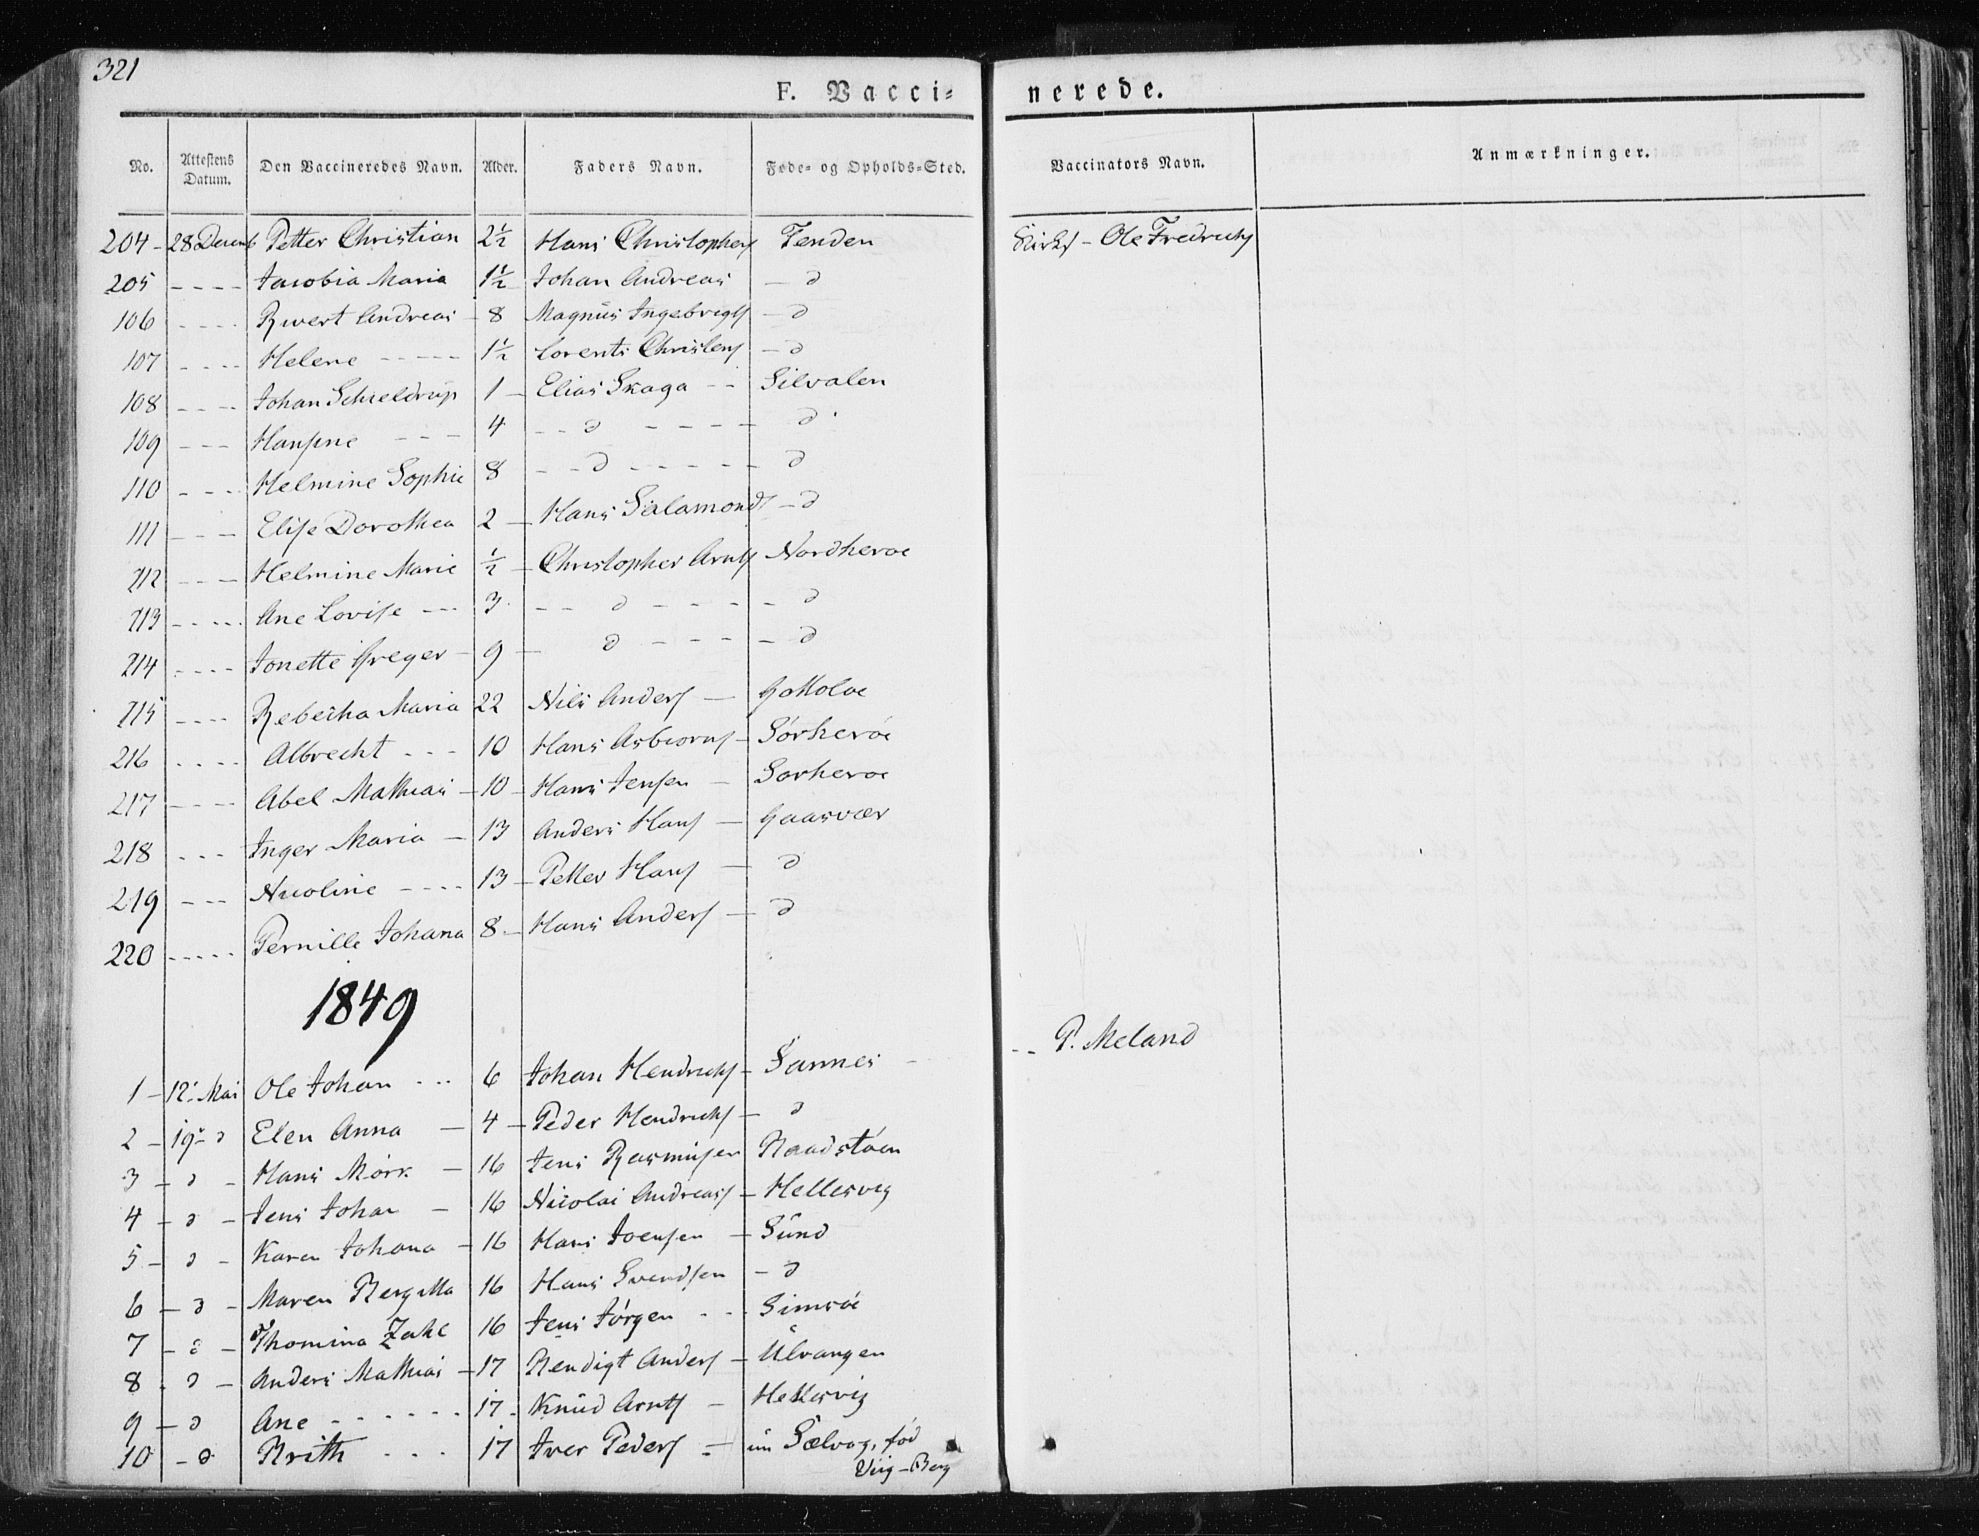 321
F. Vacci-
nerede.
No. Attestens Datum. Den Vaccineredes Navn. Alder. Faders Navn. Føde- og Opholds-Sted. Vaccinators Navn. Anmærkninger.
204 - 28 Decemb Petter Christian 2½ Hans Christophers Tenden - Ole Fredrichs
205 - - - - Jacobia Maria 1½ Johan Andreas - d
106 - - - - Andreas - 8 Magnus Ingebrigts - d
107 - - - - Helene - - - - - 1½ Lorents Christens - d
108 - - - - Johan Schieldrup 1 - Elias Skaga - - Silvalen
109 - - - Hansine - - - 4 - - d - - - - - d
110 - - - - Helmine Sophie 8 - - d - - - - - d
111 - - - Elise Dorothea 2 - Hans Salamonds - d
212 - - - Helmine Marie ½ - Christopher Arnts Nordherøe
213 - - - - - Ane Lovise - - - 3 - - d - - - - - d
214 - - - - Jonette Greger - 9 - d - - - - d
215 - - - - Rebecha Maria 22 Nils Anders -
216 - - - - Albrecht - - - 10 Hans Asbiorns - Sørherøe
217 - - - - Abel Mathias - 10 - Hans Jensen - Sørherøe
218 - - - Inger Maria - 13 Anders Hans - Gaasvær
219 - - - Nicoline - - - - 13 - Petter Hans - d
220 - - - - - Pernille Johana 8 - Hans Anders - d
1849
1 - 12' Mai Ole Johan - - - 6 Johan Hendrichs - Sannes - - - P. Meland
2 - 19' - d Elen Anna - 4 - Peder Hendrichs - d
3 - d - Hans Mörk - 16 Jens Rasmusen Baadstøen
4 - d - Jens Johan - 16 Nicolai Andreass - Hellesvig
5 - d - Karen Johana - 16 Hans Joensen - Sund
6 - d - Maren Bergitta 16 Hans Svendsen - d
7 - d - Thomina Zahl 16 Jens Jørgen - - - Simsøe
8 - d - Anders Mathias - 17 Bendigt Anders - Ulvangen
9 - d Ane - - - - - - 17 - Knud Arnts - Hellesvig
10 - d - Brith - - - 17 Iver Peders - Sælvog, fød
Viig - Berg